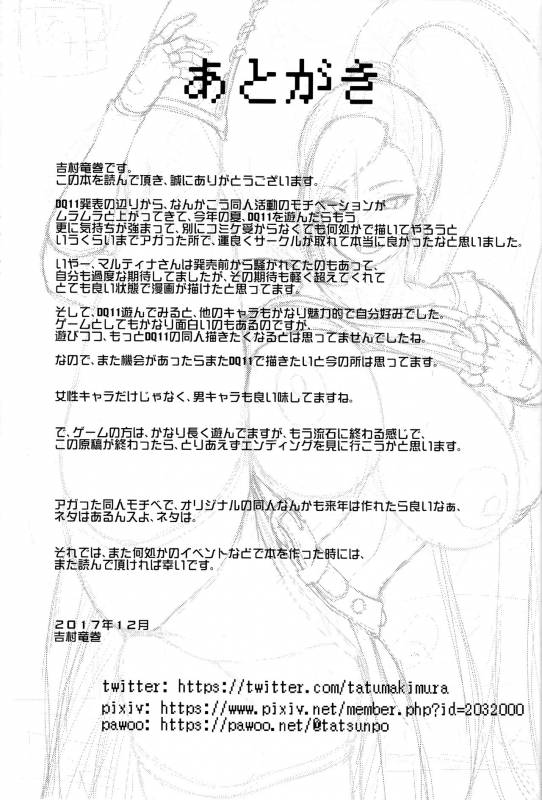 あとがき
吉村竜巻です。
この本を読んで頂き、誠にありがとうございます。
DQ11発表の辺りから、なんかこう同人活動のモチベーションが
ムラムラと上がってきて、今年の夏、DQ11を遊んだらもう
更に気持ちが強まって、別にコミケ受からなくても何処かで描いてやろうと
いうくらいまでアガった所で、運良くサークルが取れて本当に良かったなと思いました。
いやー、マルティナさんは発売前から騒がれてたのもあって、
自分も過度な期待してましたが、その期待も軽く超えてくれて
とても良い状態で漫画が描けたと思ってます。
そして、DQ11遊んでみると、他のキャラもかなり魅力的で自分好みでした。
ゲームとしてもかなり面白いのもあるのですが、
遊びつつ、もっとDQ11の同人描きたくなるとは思ってませんでしたね。
なので、また機会があったらまたDQ11で描きたいと今の所は思ってます。
女性キャラだけじゃなく、男キャラも良い味してますね。
で、ゲームの方は、かなり長く遊んでますが、もう流石に終わる感じで、
この原稿が終わったら、とりあえずエンディングを見に行こうかと思います。
アガった同人モチベで、オリジナルの同人なんかも来年は作れたら良いなぁ、
ネタはあるんスよ、ネタは。
それでは、また何処かのイベントなどで本を作った時には、
また読んで頂ければ幸いです。
2017年12月
吉村竜巻
twitter: https://twitter.com/tatumakimura
pixiv: https://www.pixiv.net/member.php?id=2032000
pawoo: https://pawoo.net/@tatsunpo